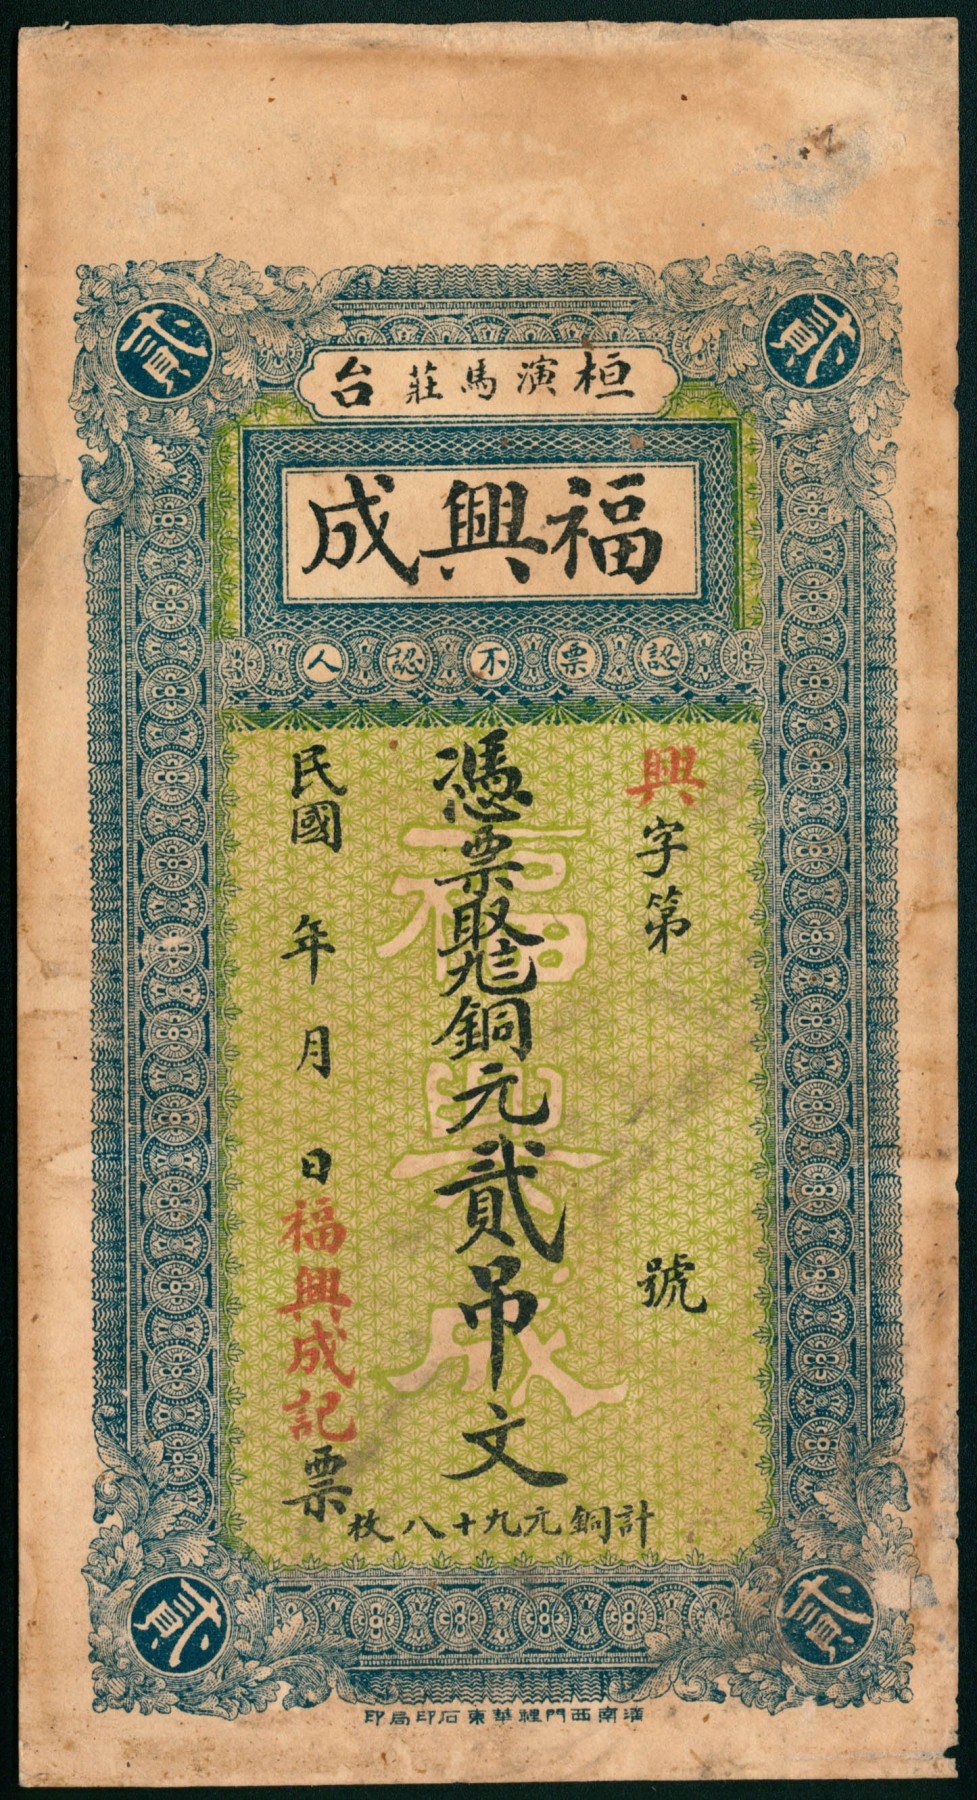 貳 貳
桓演馬莊台
福興成
認票不認人
興字第 號
憑票取九三銅元貳吊文
民國 年 月 日福興成記票
計銅元九十八枚
福興成
貳 貳
濟南西門裡華東石印局印